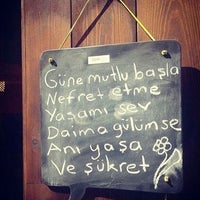 Güne mutlu başla
Nefret etme
Yaşamı sev
Daima gülümse
Anı yaşa
Ve şükret